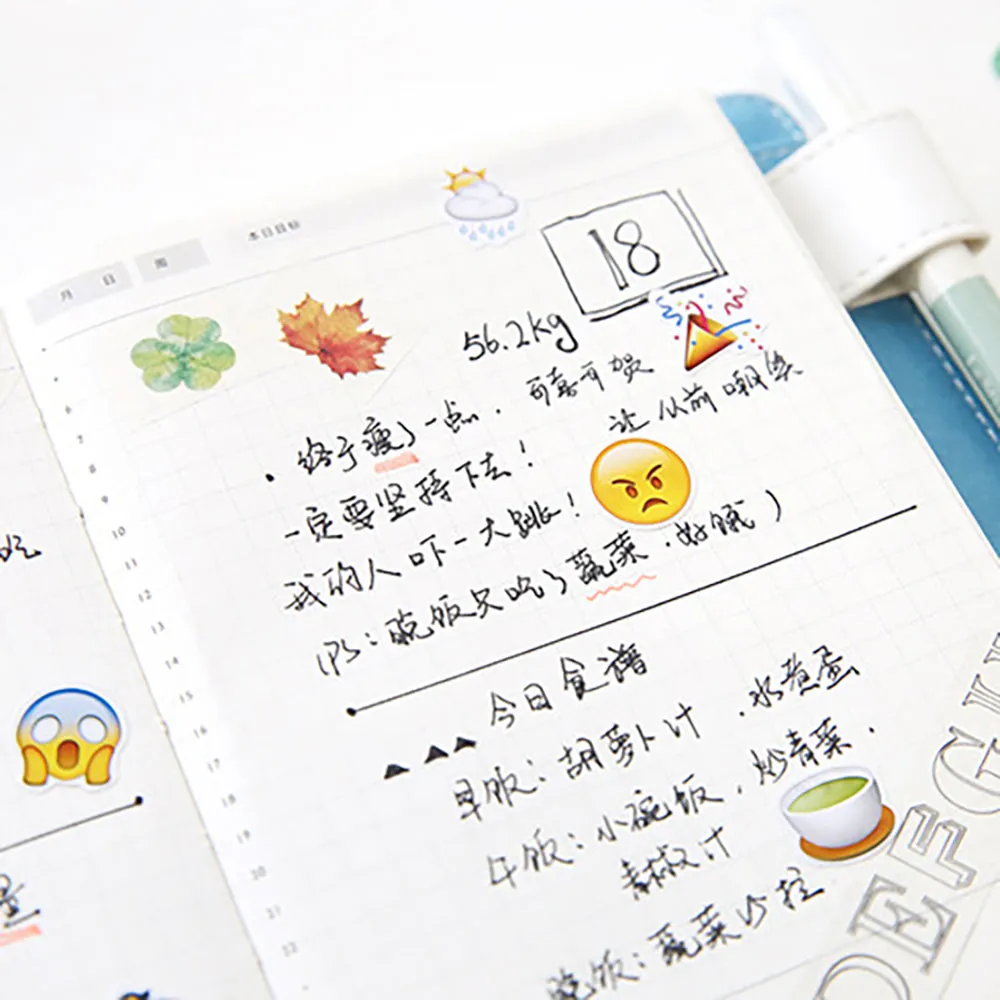 月 日 周 本日目标
18
56.2kg
• 终于瘦了一点. 可喜可贺
一定要坚持下去! 让从前嘲笑
我的人吓一大跳!
(PS: 晚饭只吃了蔬菜.好饿)
今日食谱
早饭: 胡萝卜汁 .水煮蛋
午饭: 小碗饭. 炒青菜.
青椒汁
晚饭: 蔬菜沙拉
6
7
8
9
10
11
12
13
14
15
16
17
18
19
20
21
22
吃
量
DEFGH